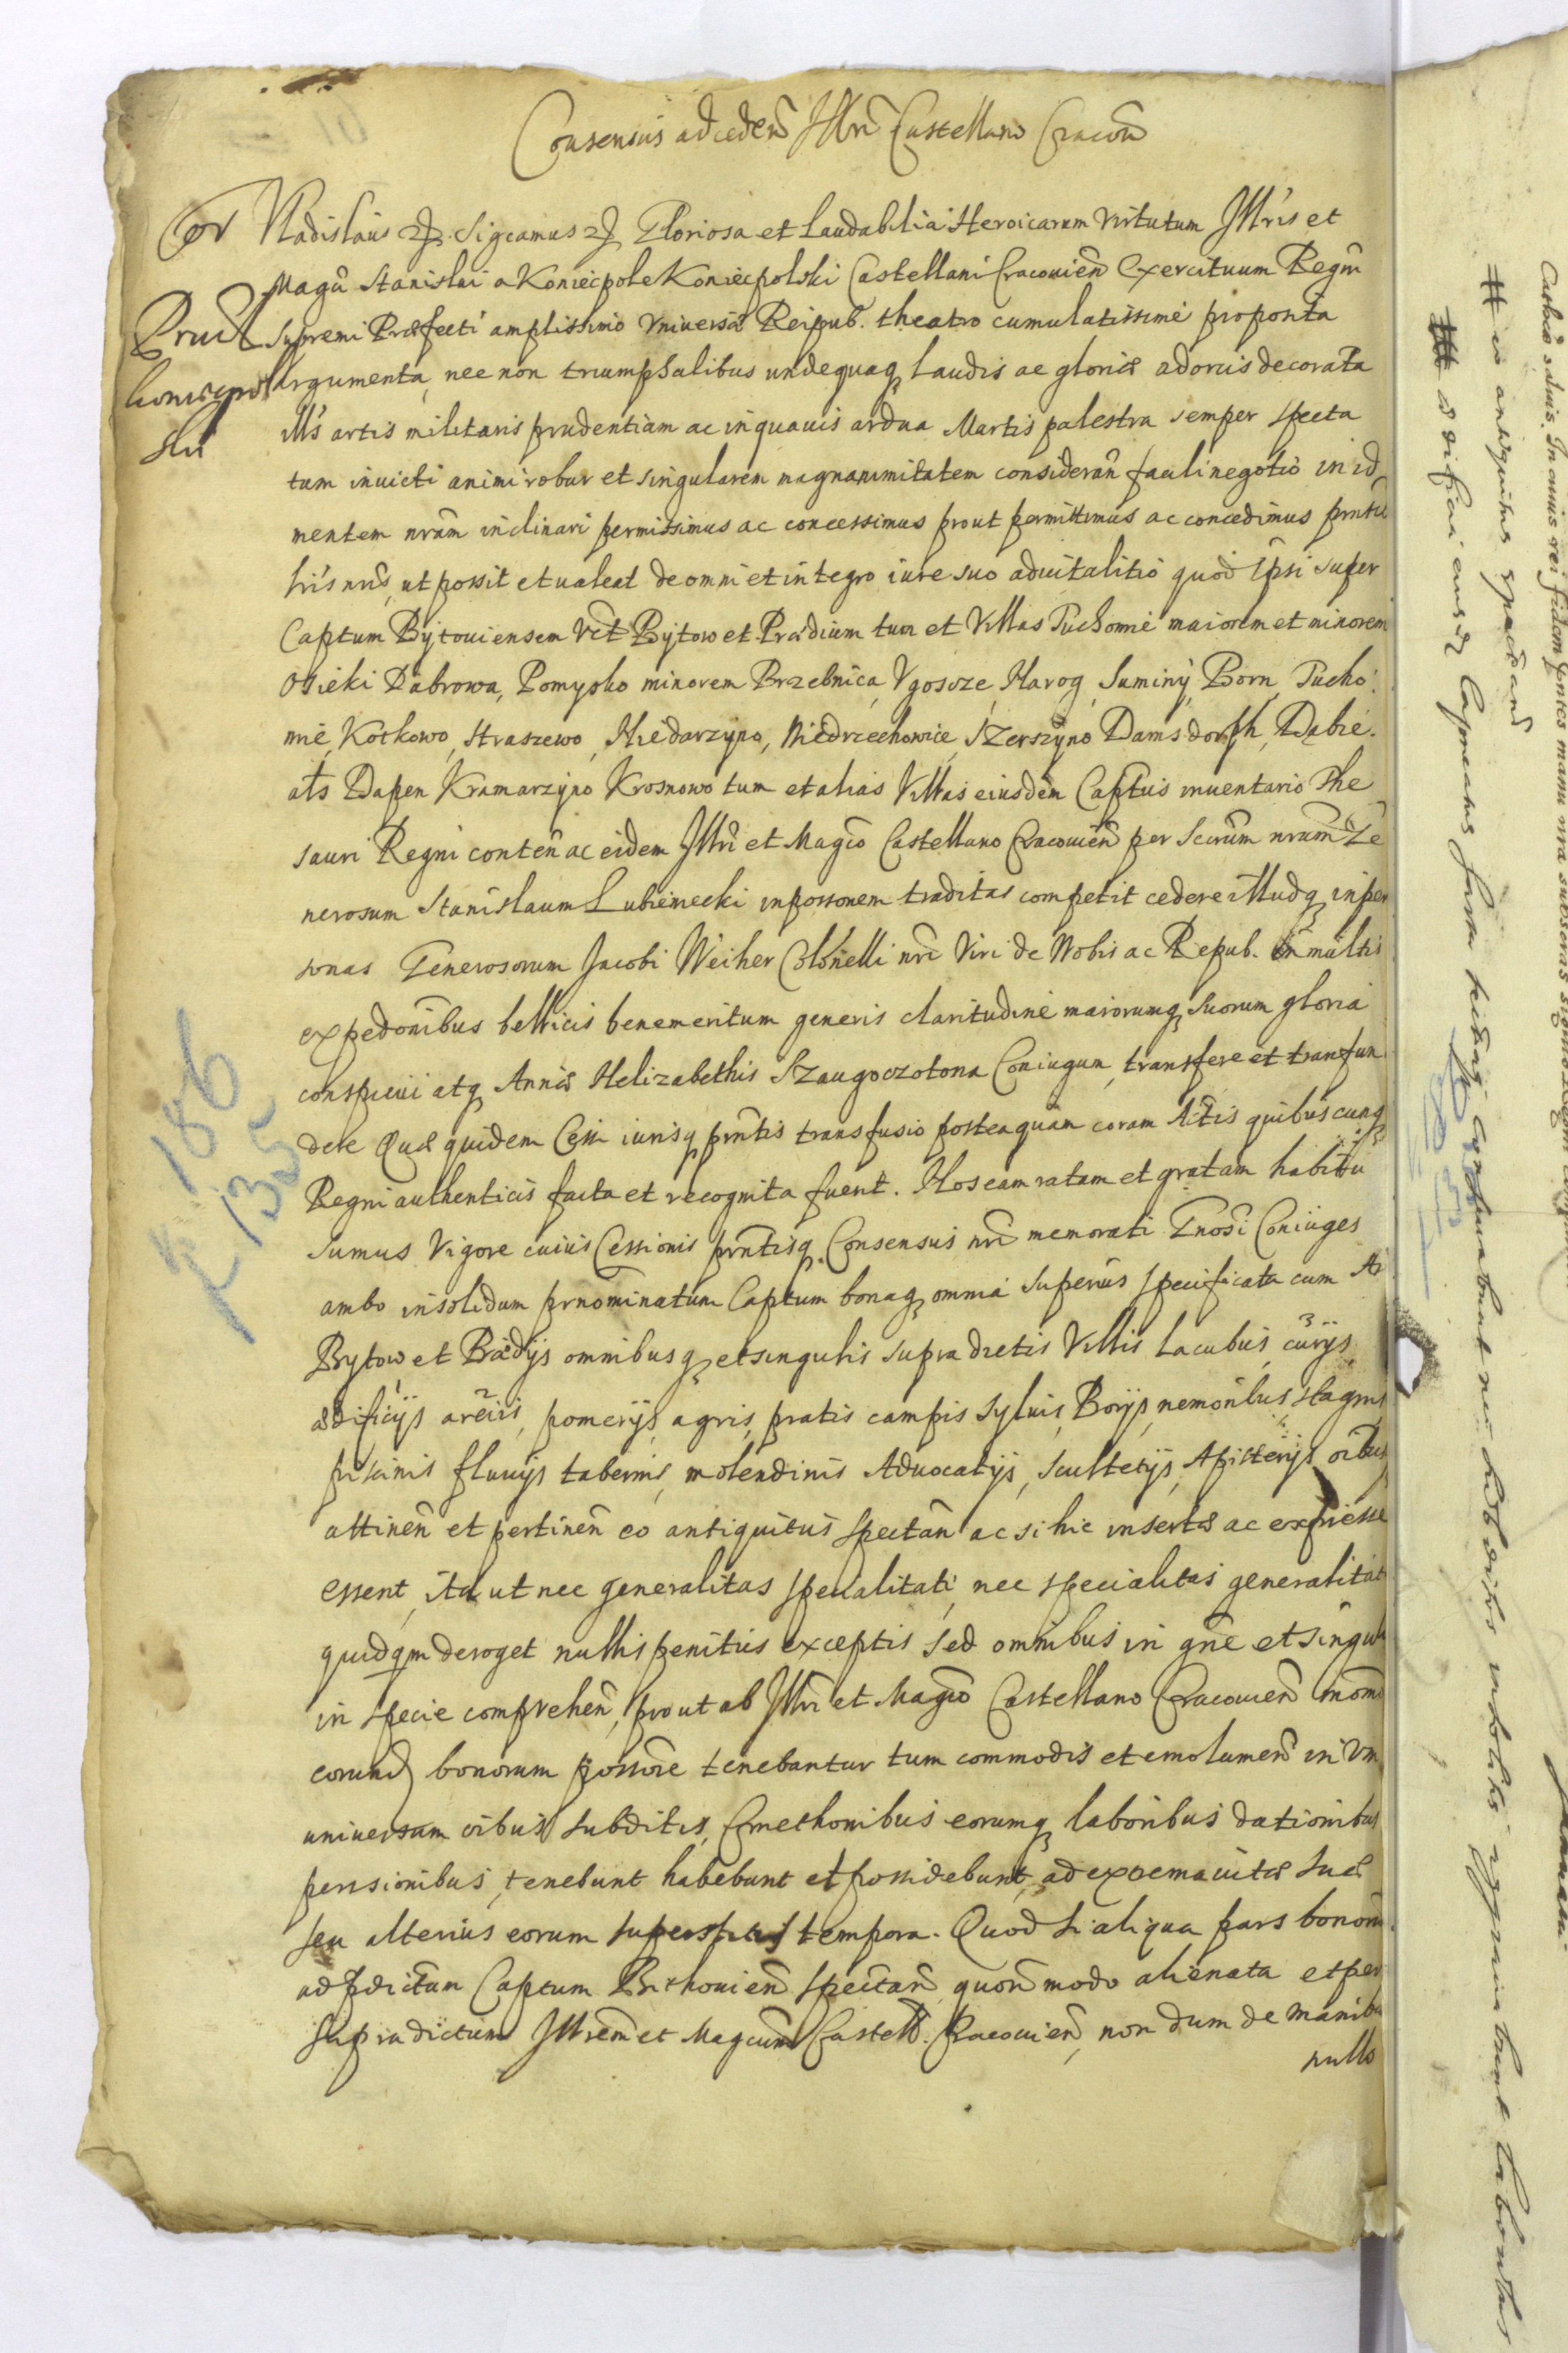 Consensus ad cedend Illri Castellano Cracou
Cor
Pruss
Koniecpol
ski
Vladislaus etc. Sigcamus etc. Gloriosa et laudabilia Heroicarum virtutum Illris et
Magci Stanislai a Koniecpole Koniecpolski Castellani Cracouien Exercituum Regni
Supremi Præfecti amplissimo vniversæ Reipub. theatro cumulatissime proposita
argumenta, nec non triumphalibus undequaq laudis ac gloriæ adoreis decorata
illis artis militaris prudentiam ac in quauis ardua Martis palestra semper specta
tum inuicti animi robur et singularem magnanimitatem consideran facili negotio in id
mentem nram inclinari permisimus ac concessimus prout permittimus ac concedimus prntib
lris nris, ut possit et ualeat de omni et integro iure suo aduitalitio quod ipsi super
Captum Bytouiensem vct Bytow et Prædium tum et Villas Tuchomie maiorem et minorem
Osieki Dabrowa, Pomysko minorem Brzebnica, Vgoscze, Jluminy Born, Tucho
mie, Kotkowo, Straszewo, Niedarzyno, Miedrzechowice, Szerszyno Damsdorph, Dąbie
als Dapen Kramarzyno Krosnowo tum et alias Villas eiusdem Captus inuentario The
sauri Regni conten ac eidem Illri et Magco Castellano Cracouien per Secrium nrum Ge
nerosum Stanislaum Lubieniecki in possonem traditas competit cedere illudq in per
sonas Generosorum Jacobi Weiher Colonelli nri Viri de Nobis ac Repub. in multis
expedonibus bellicis benemeritum generis claritudine maiorumq suorum gloria
conspicui atq Annæ Helizabethis Szaugoczotona Coniugum, transfere et transfun
dere Quæ quidem Cessi iurisq prntis transfusio posteaquam coram Actis quibuscunq
Regni authenticis facta et recognita fuerit. Nos eam ratam et gratam habitu
sumus Vigore cuius Cessionis prntisq Consensus nri memorati Gnosi Coniuges
ambo insolidum prnominatum Captum bonaq omnia superius specificata cum Ar
Bytow et Prædijs omnibusq et singulis supradictis Villis Lacubus, curijs,
ædificijs areis, pomerijs, agris, pratis campis syluis, Borijs, nemoribus, stagnis
piscinis fluuijs tabernis, molendinis Aduocatijs, scultetijs, Apisterijs oibus
attinen et pertinen eo antiquitus spectan ac si hic insertæ ac expressæ
essent, ita ut nec generalitas specialitati, nec specialitas generalitati
quidqm deroget nullis penitus exceptis sed omnibus in gne et singulis
in specie comprehen, prout ab Illri et Magco Castellano Cracouien
eorund bonorum possore tenebantur tum commodis et emolumen in vn
universum oibus subditis, Cmethonibus eorumq laboribus dationibus
pensionibus, tenebunt habebunt et possidebunt, ad extrema uitæ suæ
seu alterius eorum superstitis tempora. Quod si aliqua pars bonorum
ad pdictum Captum Bythouien spectan quouis modo alienata et per
supradictum Illrem et Magcum Castell. Cracouien, non dum de manib
nullo
186
135